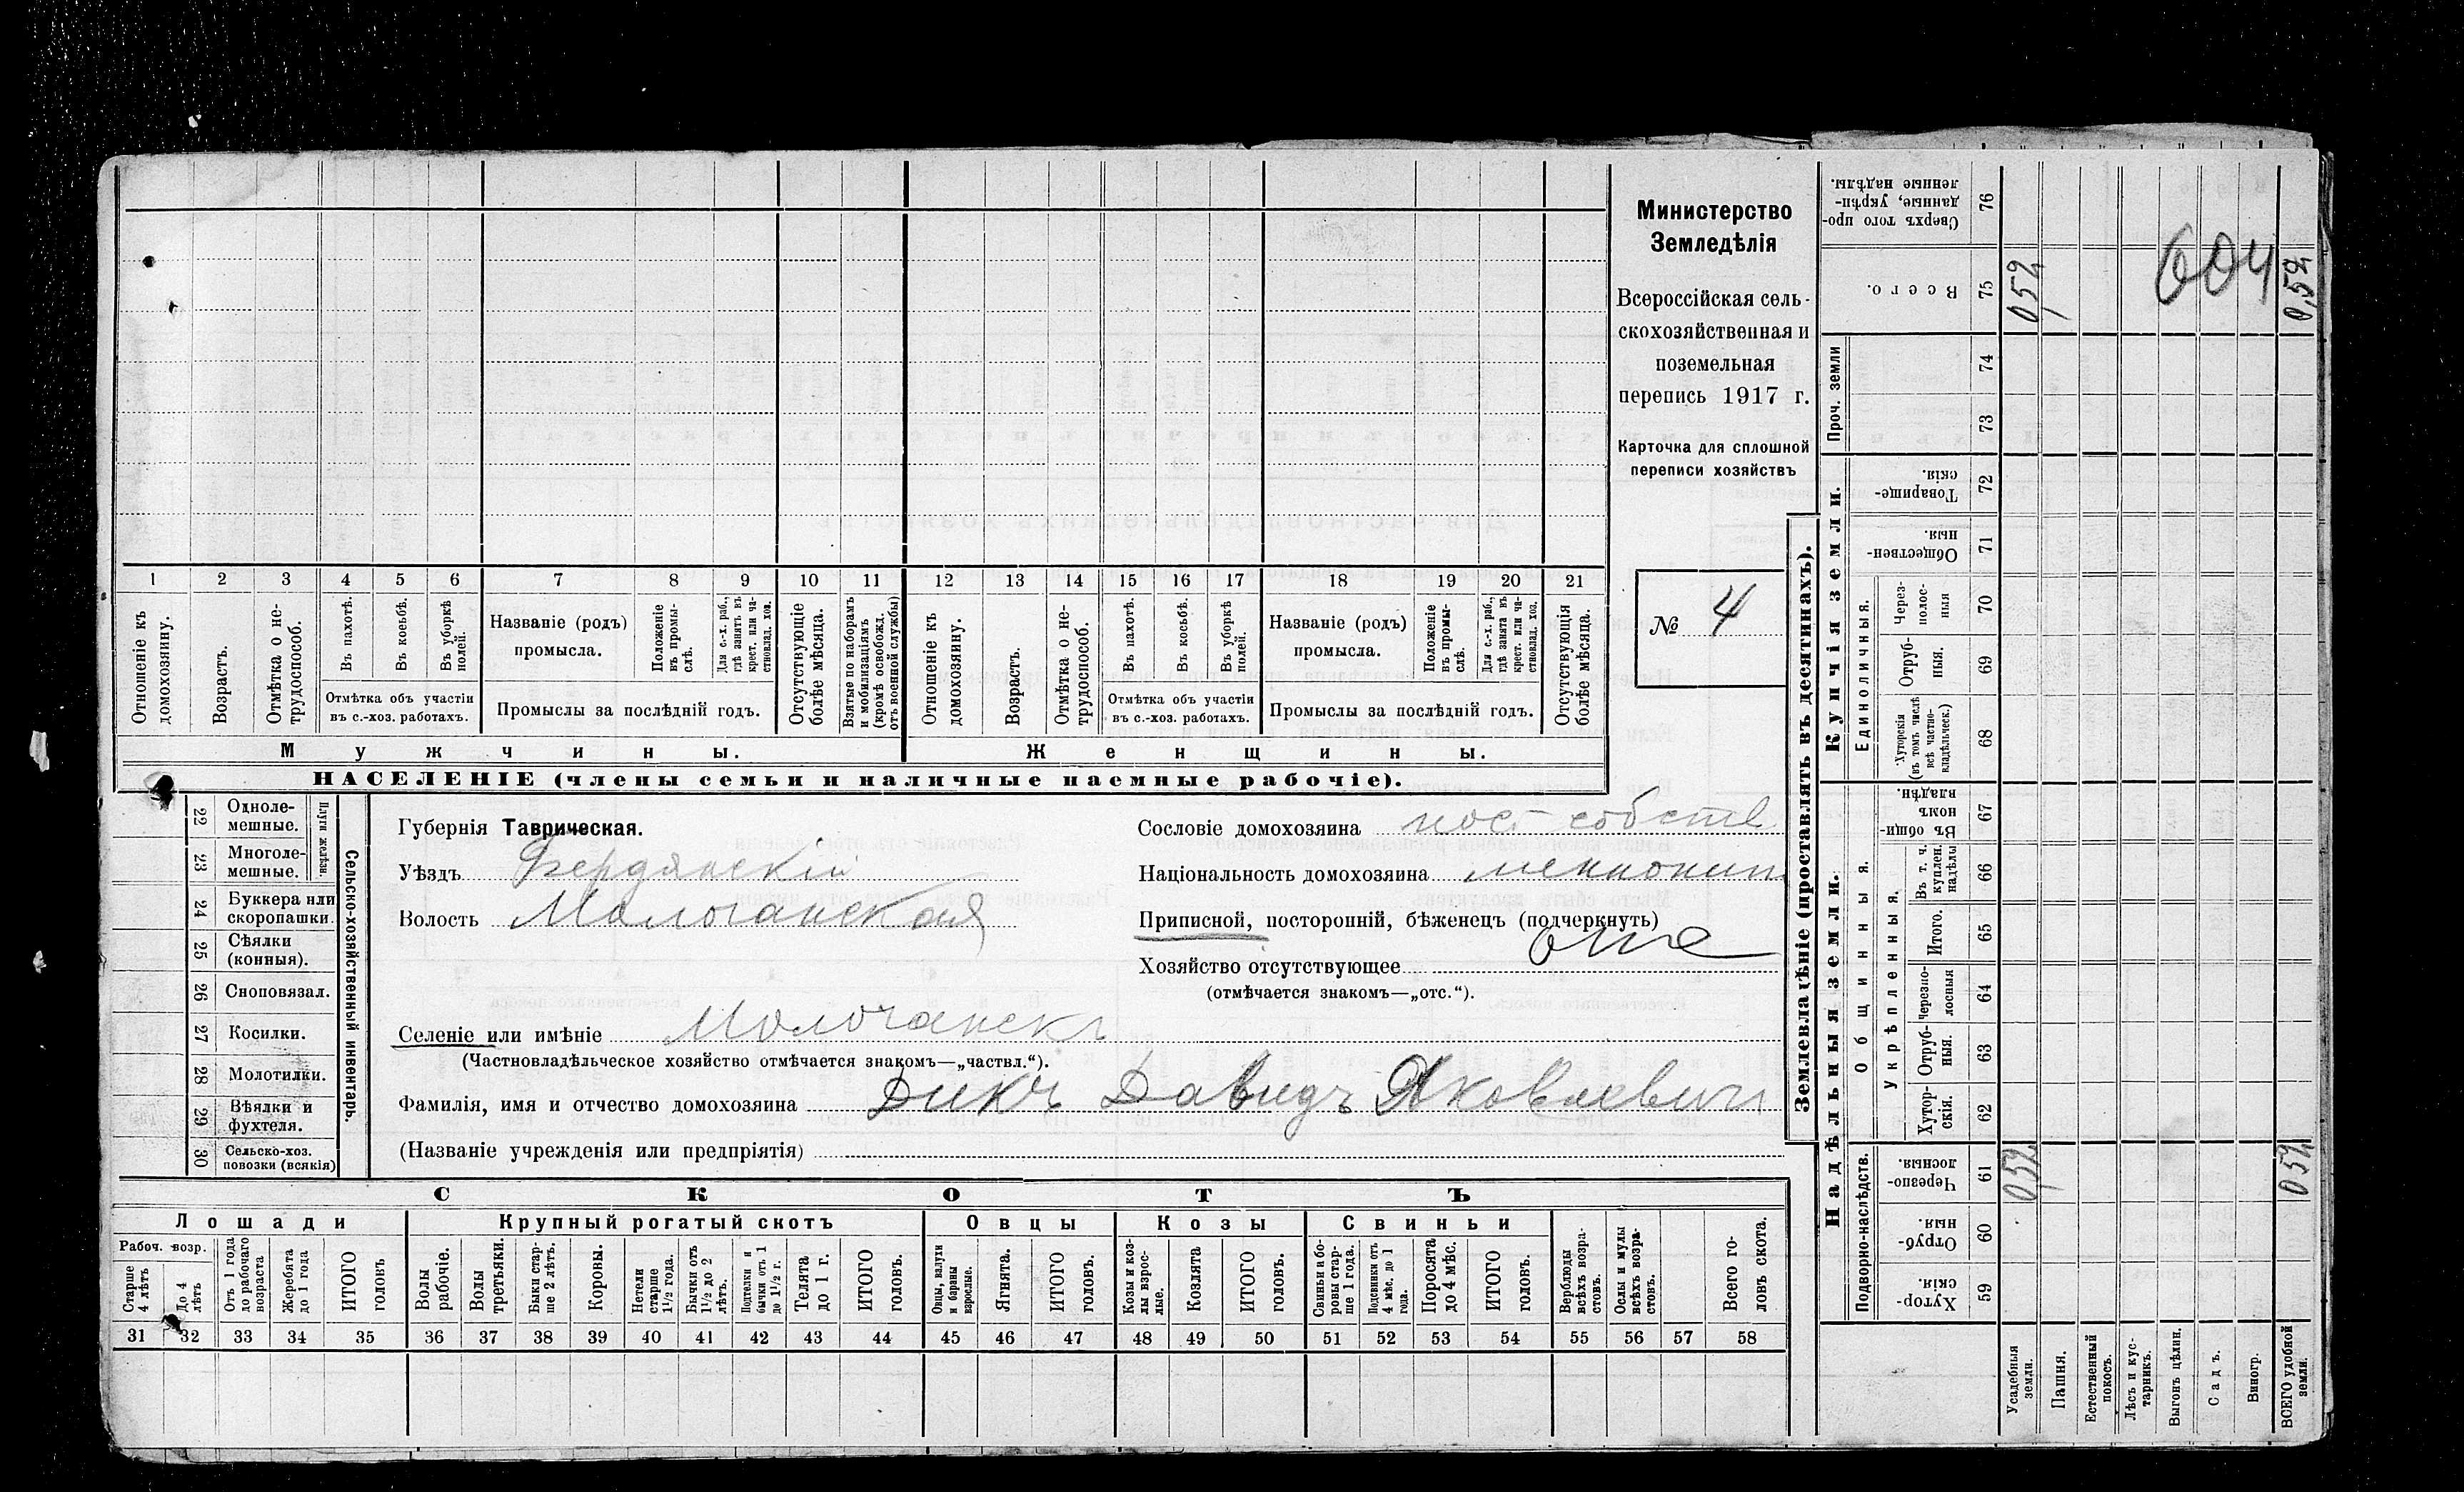 Министерство
Земледѣлія
Всероссійская сель-
скохозяйственная и
поземельная
перепись 1917 г.
Карточка для сплошной
переписи хозяйствъ
№ 4
1 2 3 4 5 6 7 8 9 10 11 12 13 14 15 16 17 18 19 20 21
Отношеніе къ домохозяину.
Возрастъ.
Отмѣтка о не-трудоспособ.
Въ пахотѣ.
Въ косьбѣ.
Въ уборкѣ полей.
Отмѣтка объ участіи
въ с.-хоз. работахъ.
Названіе (родъ)
промысла.
Положеніе въ промы-слѣ.
Для с.-х. раб., гдѣ занятъ въ крест. или ча-стновлад. хоз.
Промыслы за послѣдній годъ.
Отсутствующіе болѣе мѣсяца.
Взятые по наборамъ и мобилизаціямъ (кромѣ освобожд. отъ военной службы)
Отношеніе къ домохозяину.
Возрастъ.
Отмѣтка о не-трудоспособ.
Въ пахотѣ.
Въ косьбѣ.
Въ уборкѣ полей.
Отмѣтка объ участіи
въ с.-хоз. работахъ.
Названіе (родъ)
промысла.
Положеніе въ промы-слѣ.
Для с.-х. раб., гдѣ занята въ крест. или ча-стновлад. хоз.
Промыслы за послѣдній годъ.
Отсутствующія болѣе мѣсяца.
Мужчины.
Женщины.
НАСЕЛЕНІЕ (члены семьи и наличные наемные рабочіе).
Сельско-хозяйственный инвентарь.
Плуги желѣзн.
22 Одноле-мешные.
23 Многоле-мешные.
24 Буккера или скоропашки.
25 Сѣялки (конныя).
26 Сноповязал.
27 Косилки.
28 Молотилки.
29 Вѣялки и фухтеля.
30 Сельско-хоз. повозки (всякія)
Губернія Таврическая.
Уѣздъ Бердянскій
Волость Молочанская
Сословіе домохозяина пос собств
Національность домохозяина меннонит
Приписной, посторонній, бѣженецъ (подчеркнуть)
Хозяйство отсутствующее отс
(отмѣчается знакомъ—„отс.“).
Селеніе или имѣніе Молочанскъ
(Частновладѣльческое хозяйство отмѣчается знакомъ—„частвл.“).
Фамилія, имя и отчество домохозяина Дикъ Давидъ Яковлевич
(Названіе учрежденія или предпріятія)
СКОТЪ
Лошади
Крупный рогатый скотъ
Овцы
Козы
Свиньи
Рабоч. возр.
Старше 4 лѣтъ
До 4 лѣтъ
Отъ 1 года до рабочаго возраста
Жеребята до 1 года
ИТОГО головъ
Волы рабочіе.
Волы третьяки.
Быки стар-ше 2 лѣтъ.
Коровы.
Нетели старше 1½ года.
Бычки отъ 1½ до 2 лѣтъ.
Подтелки и бычки отъ 1 до 1½ г.
Телята до 1 г.
ИТОГО головъ.
Овцы, валухи и бараны взрослые.
Ягнята.
ИТОГО головъ.
Козы и коз-лы взрос-лые.
Козлята
ИТОГО головъ.
Свиньи и бо-ровы стар-ше 1 года.
Подсвинки отъ 4 мѣс. до 1 года.
Поросята до 4 мѣс.
ИТОГО головъ.
Верблюды всѣхъ возра-стовъ.
Ослы и мулы всѣхъ возра-стовъ.
Всего го-ловъ скота.
31 32 33 34 35 36 37 38 39 40 41 42 43 44 45 46 47 48 49 50 51 52 53 54 55 56 57 58
Землевладѣніе (проставлять въ десятинахъ).
Надѣльныя земли.
Купчія земли.
Проч. земли
Подворно-наслѣдств.
Общинныя.
Укрѣпленныя.
Единоличныя.
Сверхъ того про-данные, укрѣп-ленные надѣлы. 76
Всего. 75 0,52 0,52
604
74
73
Товарище-скія. 72
Обществен-ныя. 71
Через-полос-ныя 70
Отруб-ныя. 69
Хуторскія (въ томъ числѣ всѣ частно-владѣльческ.) 68
Въ общи-номъ владѣн. 67
Въ т. ч. куплен. надѣлы 66
Итого. 65
Черезпо-лосныя 64
Отруб-ныя. 63
Хутор-скія. 62
Черезпо-лосныя. 61 052 052
Отруб-ныя. 60
Хутор-скія. 59
Усадебныя земли.
Пашня.
Естественный покосъ.
Лѣсъ и кус-тарникъ.
Выгонъ цѣлин.
Садъ.
Виногр.
ВСЕГО удобной земли.